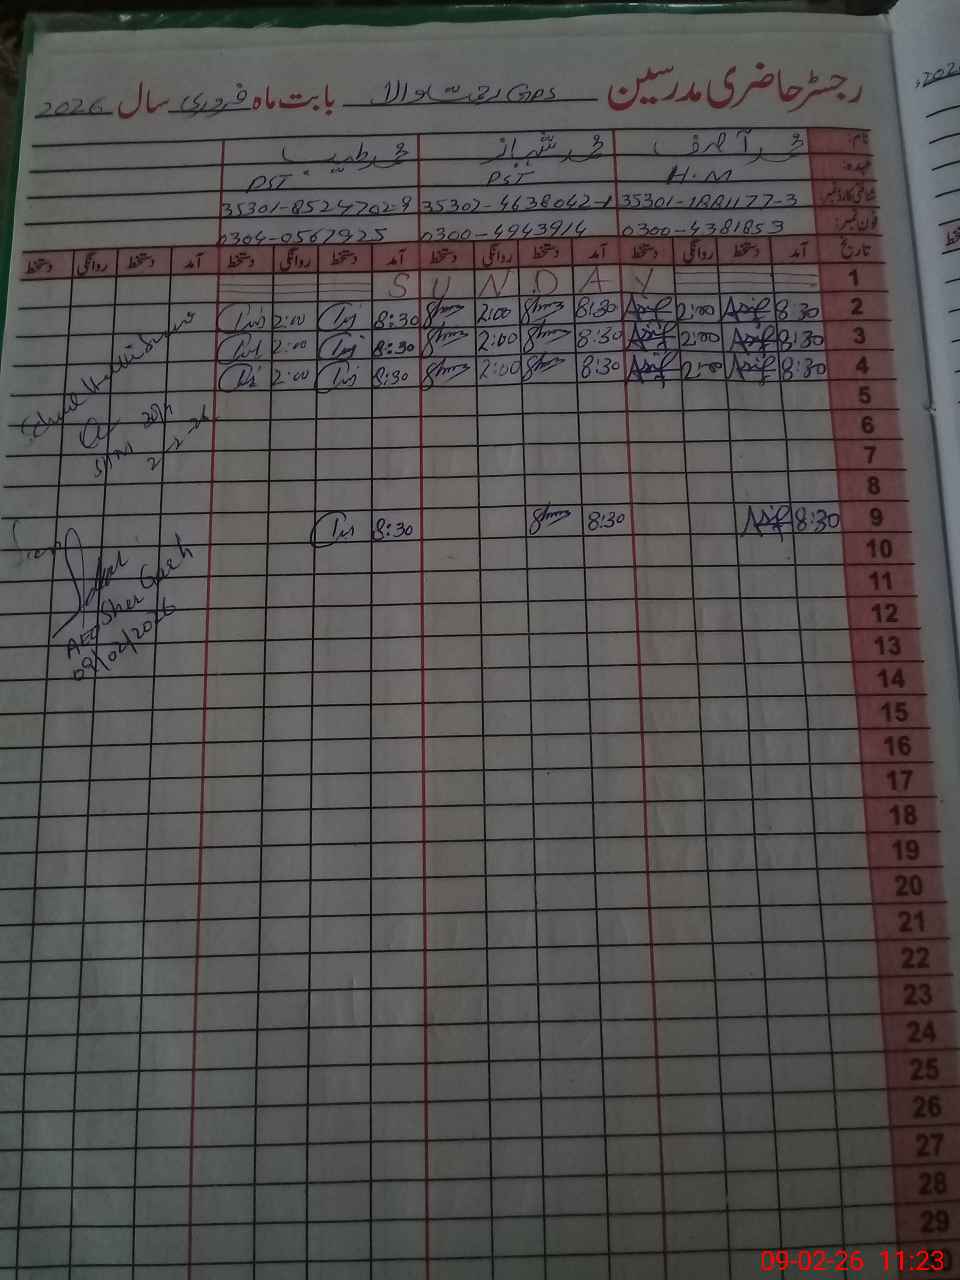 رجسٹر حاضری مدرسین GPS رحمت والا بابت ماہ فروری سال 2026
نام: محمد آصف محمد شہباز محمد طیب
عہدہ: H.M PST PST
شناختی کارڈ نمبر: 35302-4638042-1 35301-8524702-9
فون نمبر: 0300-4381853 0300-4943914 0304-0567925
تاریخ آمد دستخط روانگی دستخط آمد دستخط روانگی دستخط آمد دستخط روانگی دستخط آمد دستخط روانگی دستخط
1 SUNDAY
2 8:30 Asif 2:00 Asif 8:30 2:00 8:30 2:00
3 8:30 Asif 2:00 Asif 8:30 2:00 8:30 2:00
4 8:30 Asif 2:00 Asif 8:30 2:00 8:30 2:00
5
6
7
8
9 8:30 Asif 8:30 8:30
10
11
12
13
14
15
16
17
18
19
20
21
22
23
24
25
26
27
28
29
School
2-2-26
AEO Sher Garh
09/02/2026
09-02-26 11:23